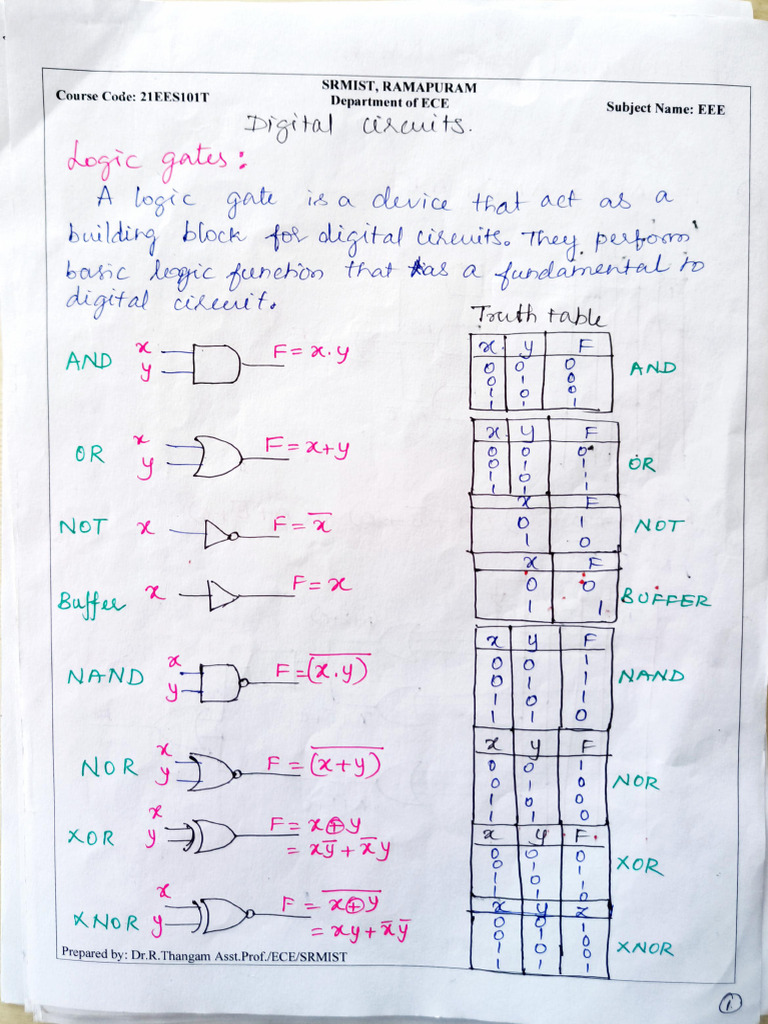 SRMIST, RAMAPURAM
Course Code: 21EES101T Department of ECE Subject Name: EEE
Digital circuits.
Logic gates:
A logic gate is a device that act as a
building block for digital circuits. They perform
basic logic function that has a fundamental to
digital circuit.
Truth table
AND x y F = x.y
x y F
0 0 0
0 1 0
1 0 0
1 1 1
AND
OR x y F = x+y
x y F
0 0 0
0 1 1
1 0 1
1 1 1
OR
NOT x F = x̅
x F
0 1
1 0
NOT
Buffer x F = x
x F
0 0
1 1
BUFFER
NAND x y F = \overline{(x.y)}
x y F
0 0 1
0 1 1
1 0 1
1 1 0
NAND
NOR x y F = \overline{(x+y)}
x y F
0 0 1
0 1 0
1 0 0
1 1 0
NOR
XOR x y F = x⊕y
= xy̅ + x̅y
x y F
0 0 0
0 1 1
1 0 1
1 1 0
XOR
XNOR x y F = \overline{x⊕y}
= xy + x̅y̅
x y Z
0 0 1
0 1 0
1 0 0
1 1 1
XNOR
Prepared by: Dr.R.Thangam Asst.Prof./ECE/SRMIST
1